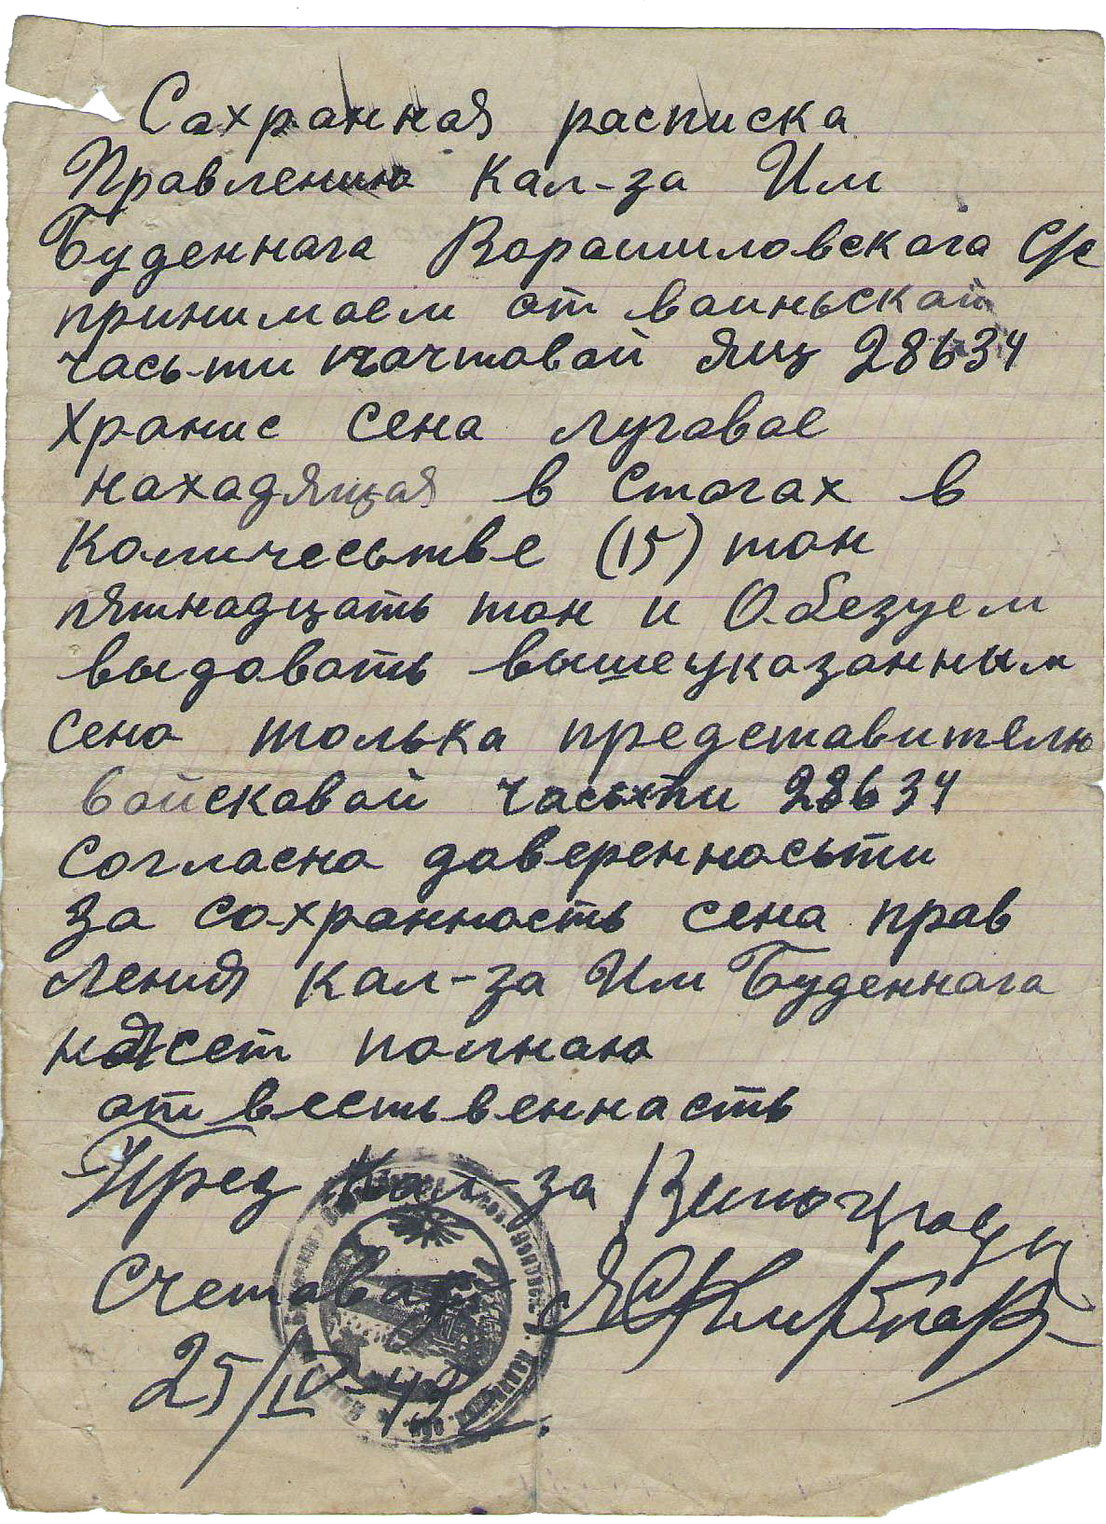 Сахранная расписка
Правлению Кал-за Им
Буденнага Ворошиловскага С/с
принимаем от ваиньской
часьти пачтовой Ящ 28634
Хранис сена лугавое
нахадящая в стогах в
Количесьтве (15) тон
пятнадцать тон и Обезуем
выдовать вышеуказанным
сено толька представителю
войсковой часьти 28634
Согласно доверенносьти
За сохранность сена прав
ления Кал-за Им Буденнага
несет полнаю
ответсьтвенность
Пред Кал-за
Счетовод
25/IV-42